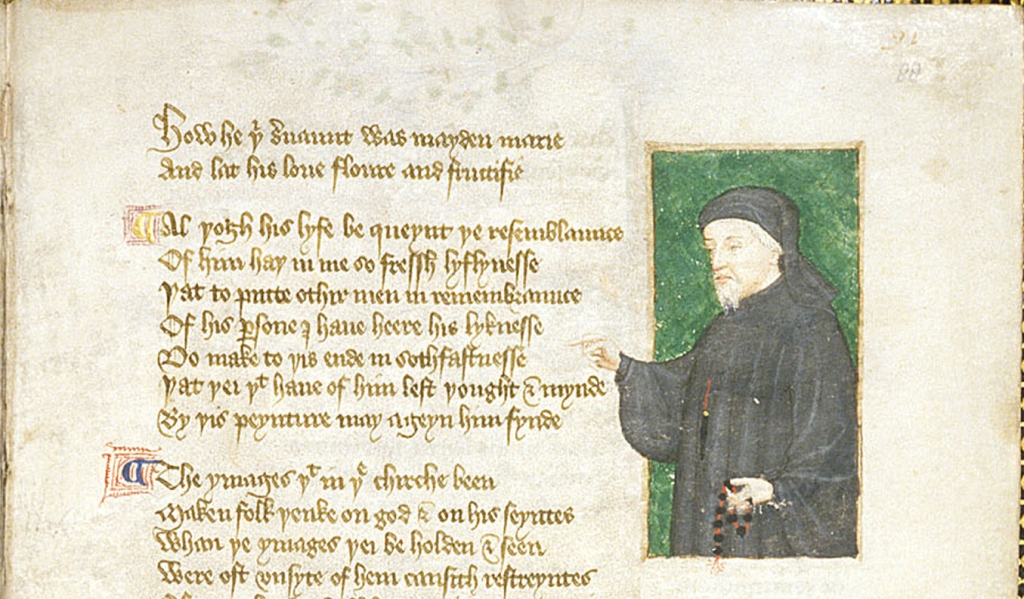 How he þⁱ s̉uaunt was mayden marie
And lat his loue floure and fructifie
Al þogh his lyfe be queynt þe resemblaunce
Of him haþ in me so fressh lyflynesse
Þat to putte othir men in remembraunce
Of his ꝑsone I haue heere his lyknesse
Do make to þis ende in sothfastnesse
Þat þei þᵗ haue of him lest þought & mynde
By þis peynture may ageyn him fynde
The ymages þᵗ in þᵉ chirche been
Maken folk þenke on god & on his seyntes
Whan þe ymages þei be holden & seen
Were oft vnsyte of hem causith restreyntes
88